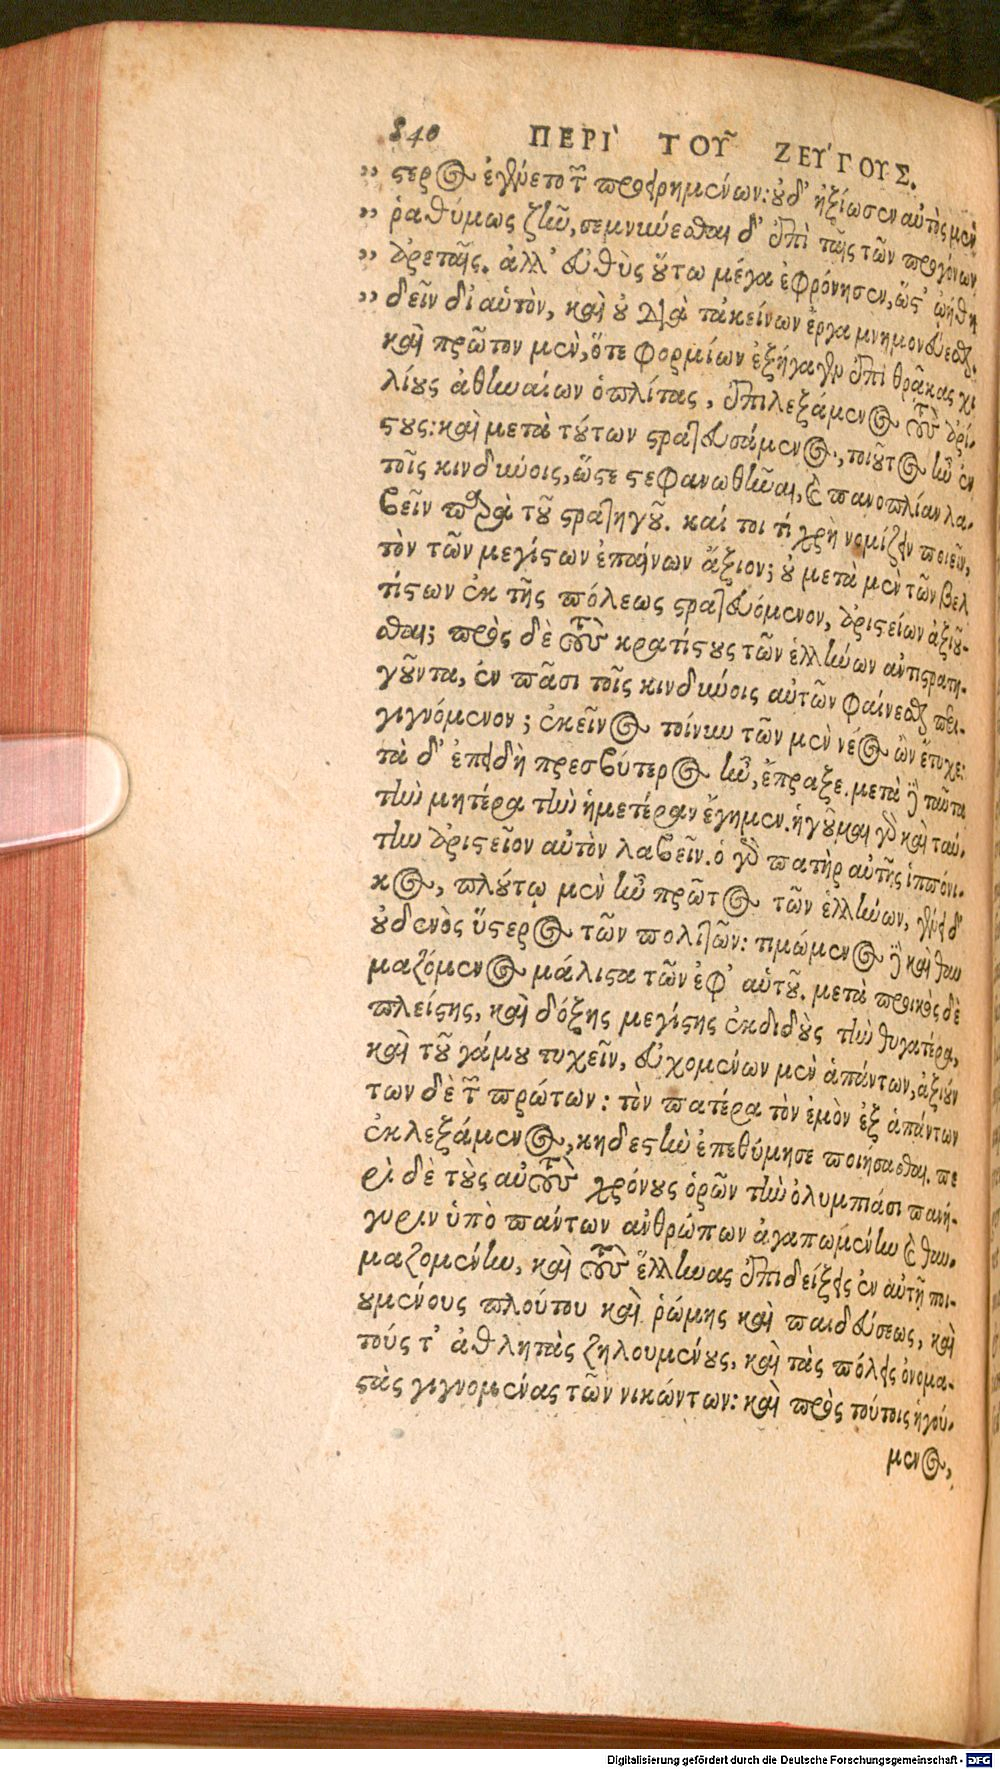 840 ΠΕΡΙ` ΤΟΥ͂ ΖΕΥ´ΓΟΥΣ.
„ στερος ἐγένετο τῶν προειρημένων: οὐδ' ἠξίωσεν αὐτὸς μὲν
„ ῥαθύμως ζῆν, σεμνύνεσθαι δ' ἐπὶ ταῖς τῶν προγόνων
„ ἀρεταῖς. ἀλλ' εὐθὺς οὕτω μέγα ἐφρόνησεν, ὥστ' ᾠήθη
„ δεῖν δι' αὑτὸν, καὶ οὐ διὰ τἀκείνων ἔργα μνημονεύεσθαι.
καὶ πρῶτον μὲν, ὅτε φορμίων ἐξήγαγεν ἐπὶ θρᾶκας χι
λίους ἀθηναίων ὁπλίτας, ἐπιλεξάμενος τοὺς ἀρί-
στους: καὶ μετὰ τούτων στρατευσάμενος, τοιοῦτος ἦν ἐν
τοῖς κινδύνοις, ὥστε στεφανωθῆναι, καὶ πανοπλίαν λα-
βεῖν παρὰ τοῦ στρατηγοῦ. καί τοι τί χρὴ νομίζειν ποιεῖν,
τὸν τῶν μεγίστων ἐπαίνων ἄξιον; οὐ μετὰ μὲν τῶν βελ
τίστων ἐκ τῆς πόλεως στρατευόμενον, ἀριστείων ἀξιοῦ-
σθαι; πρὸς δὲ τοὺς κρατίστους τῶν ἑλλήνων ἀντιστρατη-
γοῦντα, ἐν πᾶσι τοῖς κινδύνοις αὐτῶν φαίνεσθαι περι-
γιγνόμενον; ἐκεῖνος τοίνυν τῶν μὲν νέος ὢν ἔτυχε:
τὰ δ' ἐπειδὴ πρεσβύτερος ἦν, ἔπραξε. μετὰ δὲ ταῦτα
τὴν μητέρα τὴν ἡμετέραν ἔγημεν. ἡγοῦμαι γὰρ καὶ ταύ-
την ἀριστεῖον αὐτὸν λαβεῖν. ὁ γὰρ πατὴρ αὐτῆς ἱππόνι-
κος, πλούτῳ μὲν ἦν πρῶτος τῶν ἑλλήνων, γένει δ'
οὐδενὸς ὕστερος τῶν πολιτῶν: τιμώμενος δὲ καὶ θαυ
μαζόμενος μάλιστα τῶν ἐφ' αὑτοῦ. μετὰ προικὸς δὲ
πλείστης, καὶ δόξης μεγίστης ἐκδιδοὺς τὴν θυγατέρα,
καὶ τοῦ γάμου τυχεῖν, εὐχομένων μὲν ἁπάντων, ἀξιούν
των δὲ τῶν πρώτων: τὸν πατέρα τὸν ἐμὸν ἐξ ἁπάντων
ἐκλεξάμενος, κηδεστὴν ἐπεθύμησε ποιήσασθαι. πε
ρὶ δὲ τοὺς αὐτοὺς χρόνους ὁρῶν τὴν ὀλυμπιάσι πανή-
γυριν ὑπὸ πάντων ἀνθρώπων ἀγαπωμένην καὶ θαυ-
μαζομένην, καὶ τοὺς ἕλληνας ἐπιδείξεις ἐν αὐτῇ ποι-
ουμένους πλούτου καὶ ῥώμης καὶ παιδεύσεως, καὶ
τούς τ' ἀθλητὰς ζηλουμένους, καὶ τὰς πόλεις ὀνομα-
στὰς γιγνομένας τῶν νικώντων: καὶ πρὸς τούτοις ἡγού-
μενος,
Digitalisierung gefördert durch die Deutsche Forschungsgemeinschaft - DFG